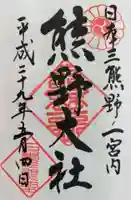 日本三熊野一宮内
熊野大社
平成二十九年五月四日